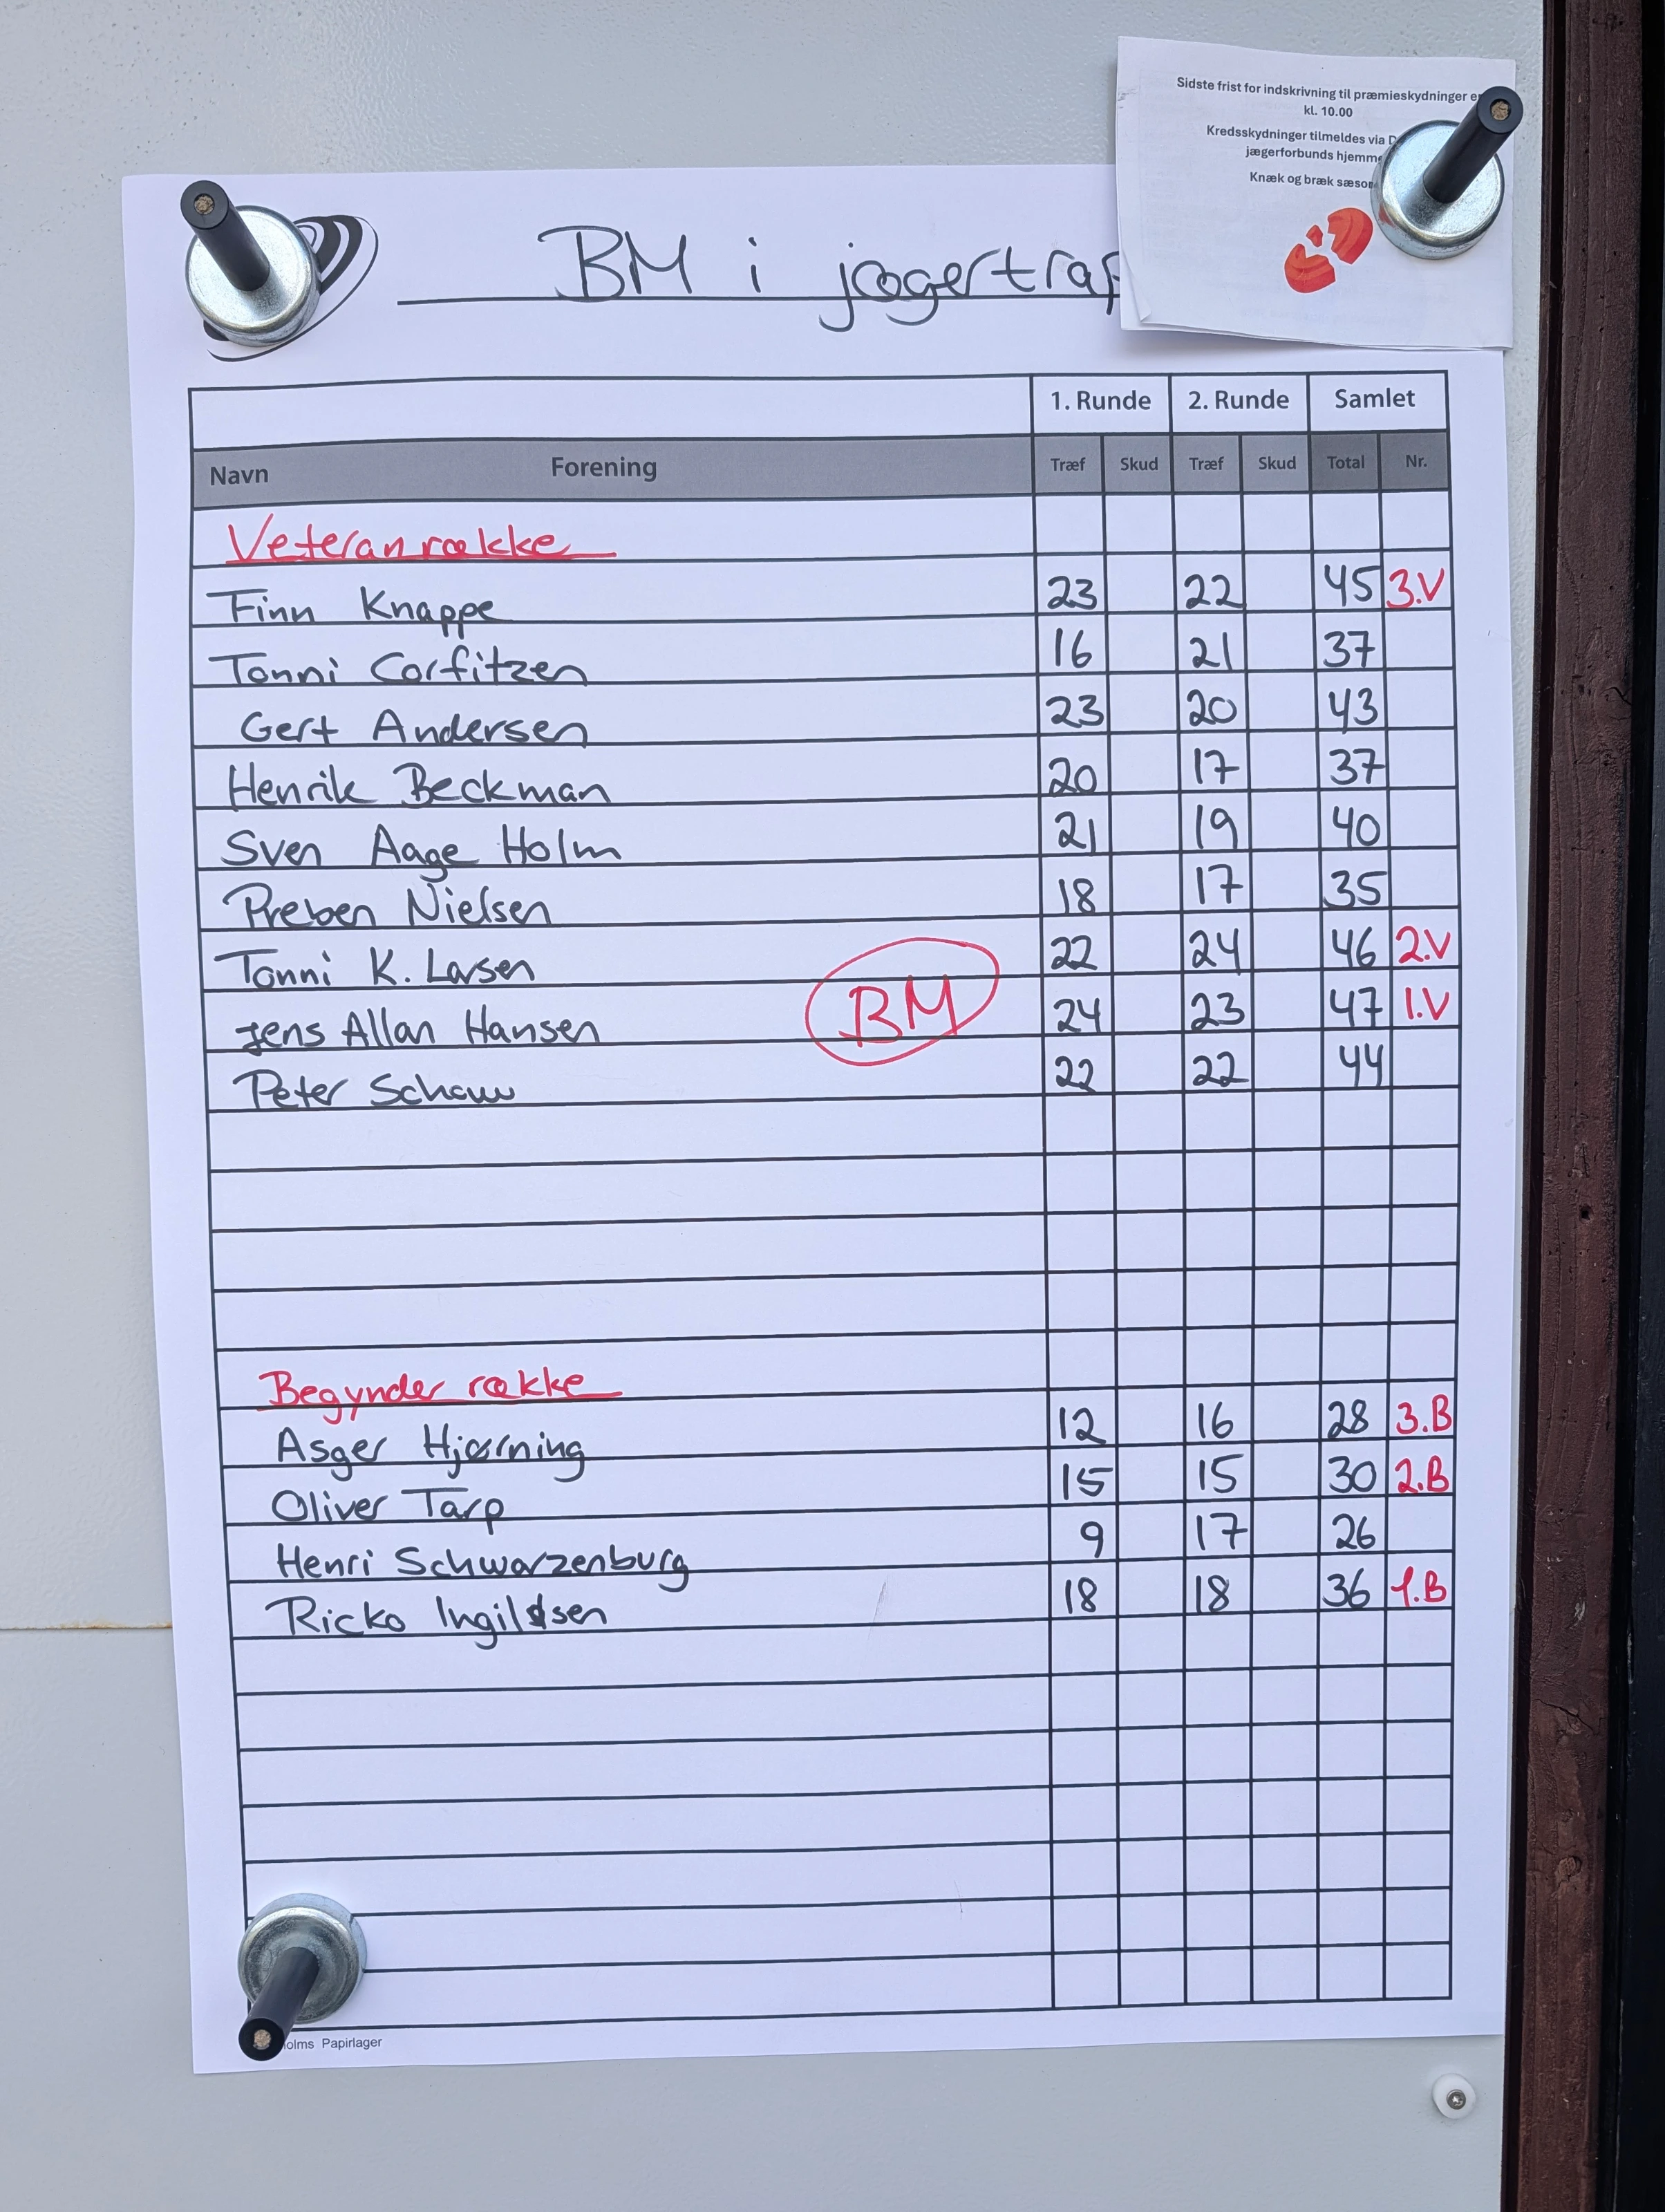 Sidste frist for indskrivning til præmieskydninger
kl. 10.00
Kredsskydninger tilmeldes via
jægerforbunds
Knæk og bræk
BM i
1. Runde 2. Runde Samlet
Navn Forening Træf Skud Træf Skud Total Nr.
Veteranrække
Finn Knappe 23 22 45 3.V
Tonni Corfitzen 16 21 37
Gert Andersen 23 20 43
Henrik Beckman 20 17 37
Sven Aage Holm 21 19 40
Preben Nielsen 18 17 35
Tonni K. Larsen 22 24 46 2.V
Jens Allan Hansen BM 24 23 47 1.V
Peter 22 22 44
Begynder række
Asger Hjørning 12 16 28 3.B
Oliver Tarp 15 15 30 2.B
Henri Schwarzenburg 9 17 26
Ricko 18 18 36 1.B
Papirlager